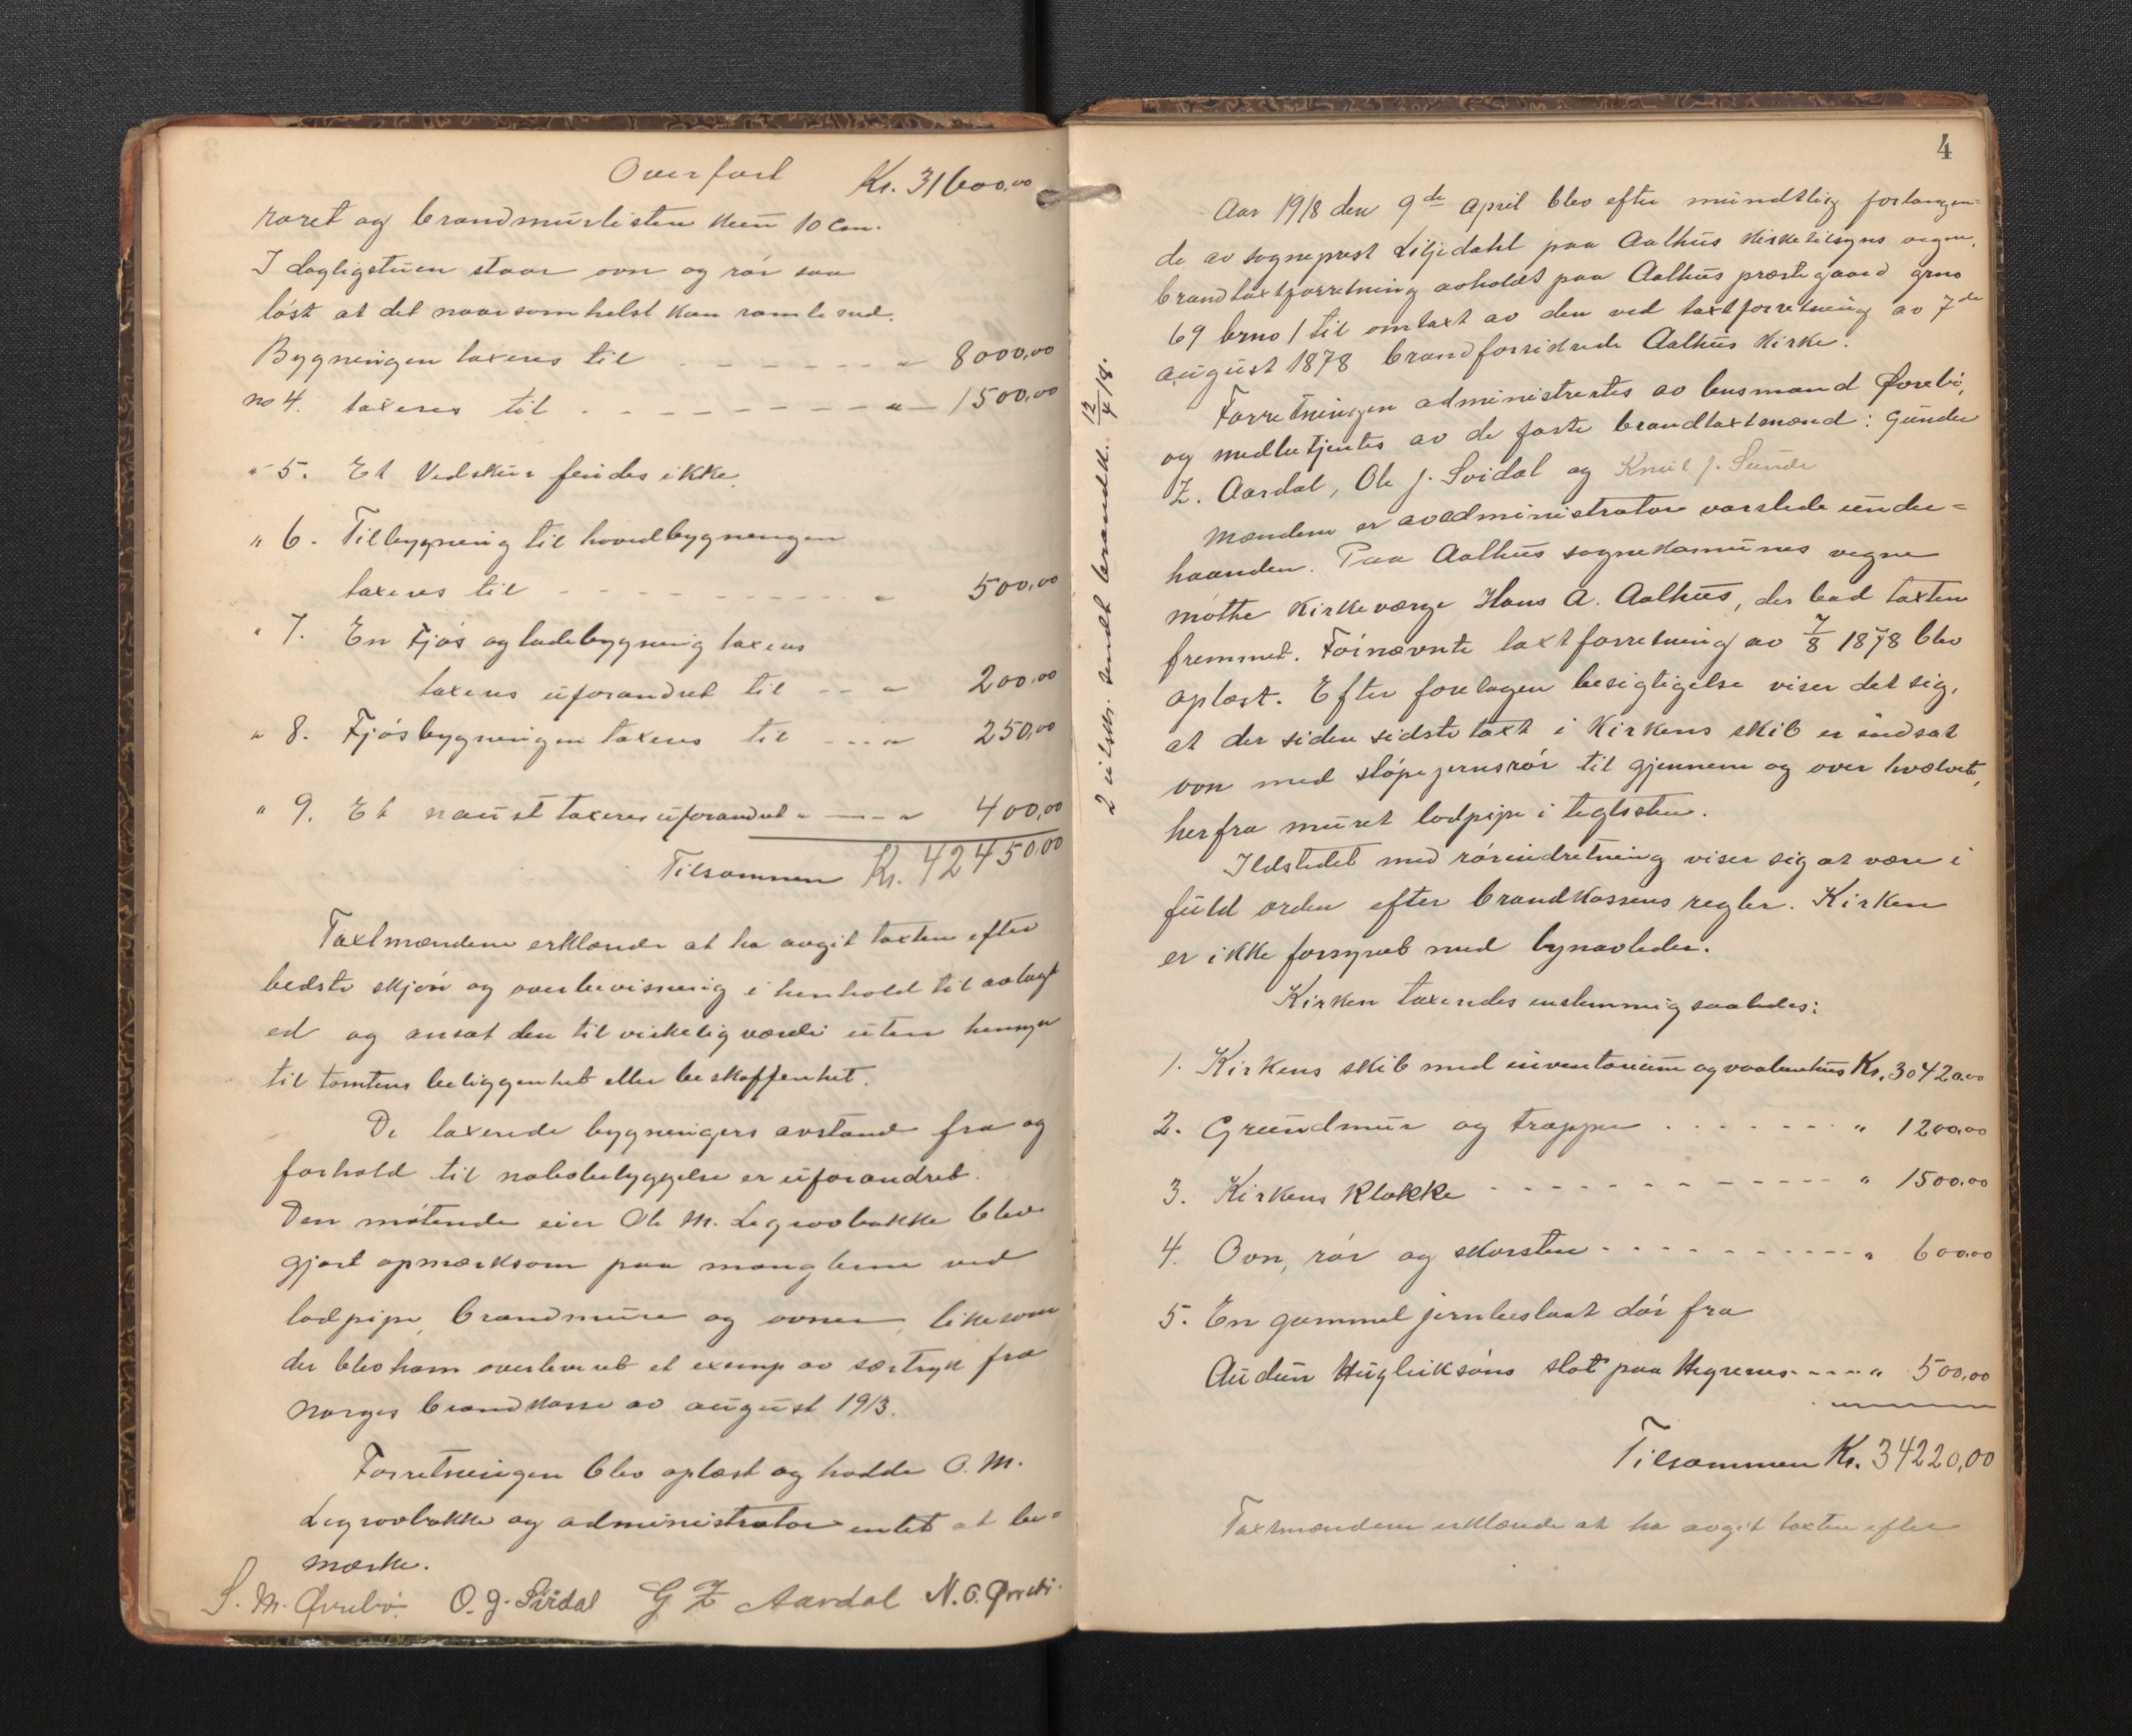 Overført Kr. 31600,00
røret og brandmurlisten kun 10 Cm.
I dagligstuen staar ovn og rør saa
løst at det naarsomhelst kan ramle ned.
Bygningen taxeres til - - - - - - " 8000,00
no 4. taxeres til - - - - - - - - " 1500,00
" 5. Et Vedskur findes ikke.
" 6. Tilbygning til hovedbygningen
taxeres til - - - - - - - - " 500,00
" 7. En Fjøs og ladebygning taxeres
taxeres uforandret til - - " 200,00
" 8. Fjøsbygningen taxeres til - - - " 250,00
" 9. Et naust taxeres uforandret " - - - " 400,00
Tilsammen Kr. 42450,00
Taxtmændene erklærede at ha avgit taxten efter
bedste skjøn og overbevisning i henhold til avlagt
ed og ansat den til virkelig værdi uten hensyn
til tomtens beliggenhet eller beskaffenhet.
De taxerede bygningers avstand fra og
forhold til nabobebyggelse er uforandret.
Den møtende eier Ole M. Legrovbakke blev
gjort opmærksom paa manglerne ved
lodpipe, brandmure og ovner, likesom
der blev ham overleveret et exemp av særtryk fra
Norges brandkasse av august 1913.
Forretningen blev oplæst og hadde O. M.
Legrovbakke og administrator intet at be=
mærke.
S. M. Øvrebø. O. J. Svidal G Z Aardal N. O. Øvrebø.
4
Aar 1918 den 9de April blev efter mundtlig forlangen=
de av sogneprest Liljedahl paa Aalhus Kirketilsyns vegne,
brandtaxtforretning avholdt paa Aalhus præstegaard grno
69 brno 1 til omtaxt av den ved taxtforretning av 7de
august 1878 brandforsikrede Aalhus Kirke.
Forretningen administrertes av lensmand Øvrebø,
og medbetjentes av de faste brandtaxtmænd: Gunder
Z. Aardal, Ole J. Svidal og Knut J. Sunde
Mændene er av administrator varslede under=
haanden. Paa Aalhus sognekomunes vegne
møtte Kirkeværge Hans A. Aalhus, der bad taxten
fremmet. Føinævnte taxtforretning av 7/8 1878 blev
oplæst. Efter foretagen besigtigelse viser det sig,
at der siden sidste taxt i Kirkens skib er indsat
ovn med støpejernsrør til gjennem og over hvælvet,
herfra muret lodpipe i teglsten.
Ildstedet med rørindretning viser sig at være i
fuld orden efter brandkassens regler. Kirken
er ikke forsynet med lynavleder.
Kirken taxeredes enstemmig saaledes:
1. Kirkens skib med inventarium og vaabenhus Kr. 30420,00
2. Grundmur og trapper - - - - - - " 1200,00
3. Kirkens Klokke - - - - - - - - - - " 1500,00
4. Ovn, rør og skorsten - - - - - - - - " 600,00
5. En gammel jernbeslaat dør fra
Audun Hugleiksøns slot paa Hegrenes - - - - " 500,00
Tilsammen Kr. 34220,00
Taxtmændene erklærede at ha avgit taxten efter
2 utskr. sendt brandk. 12/4 18.